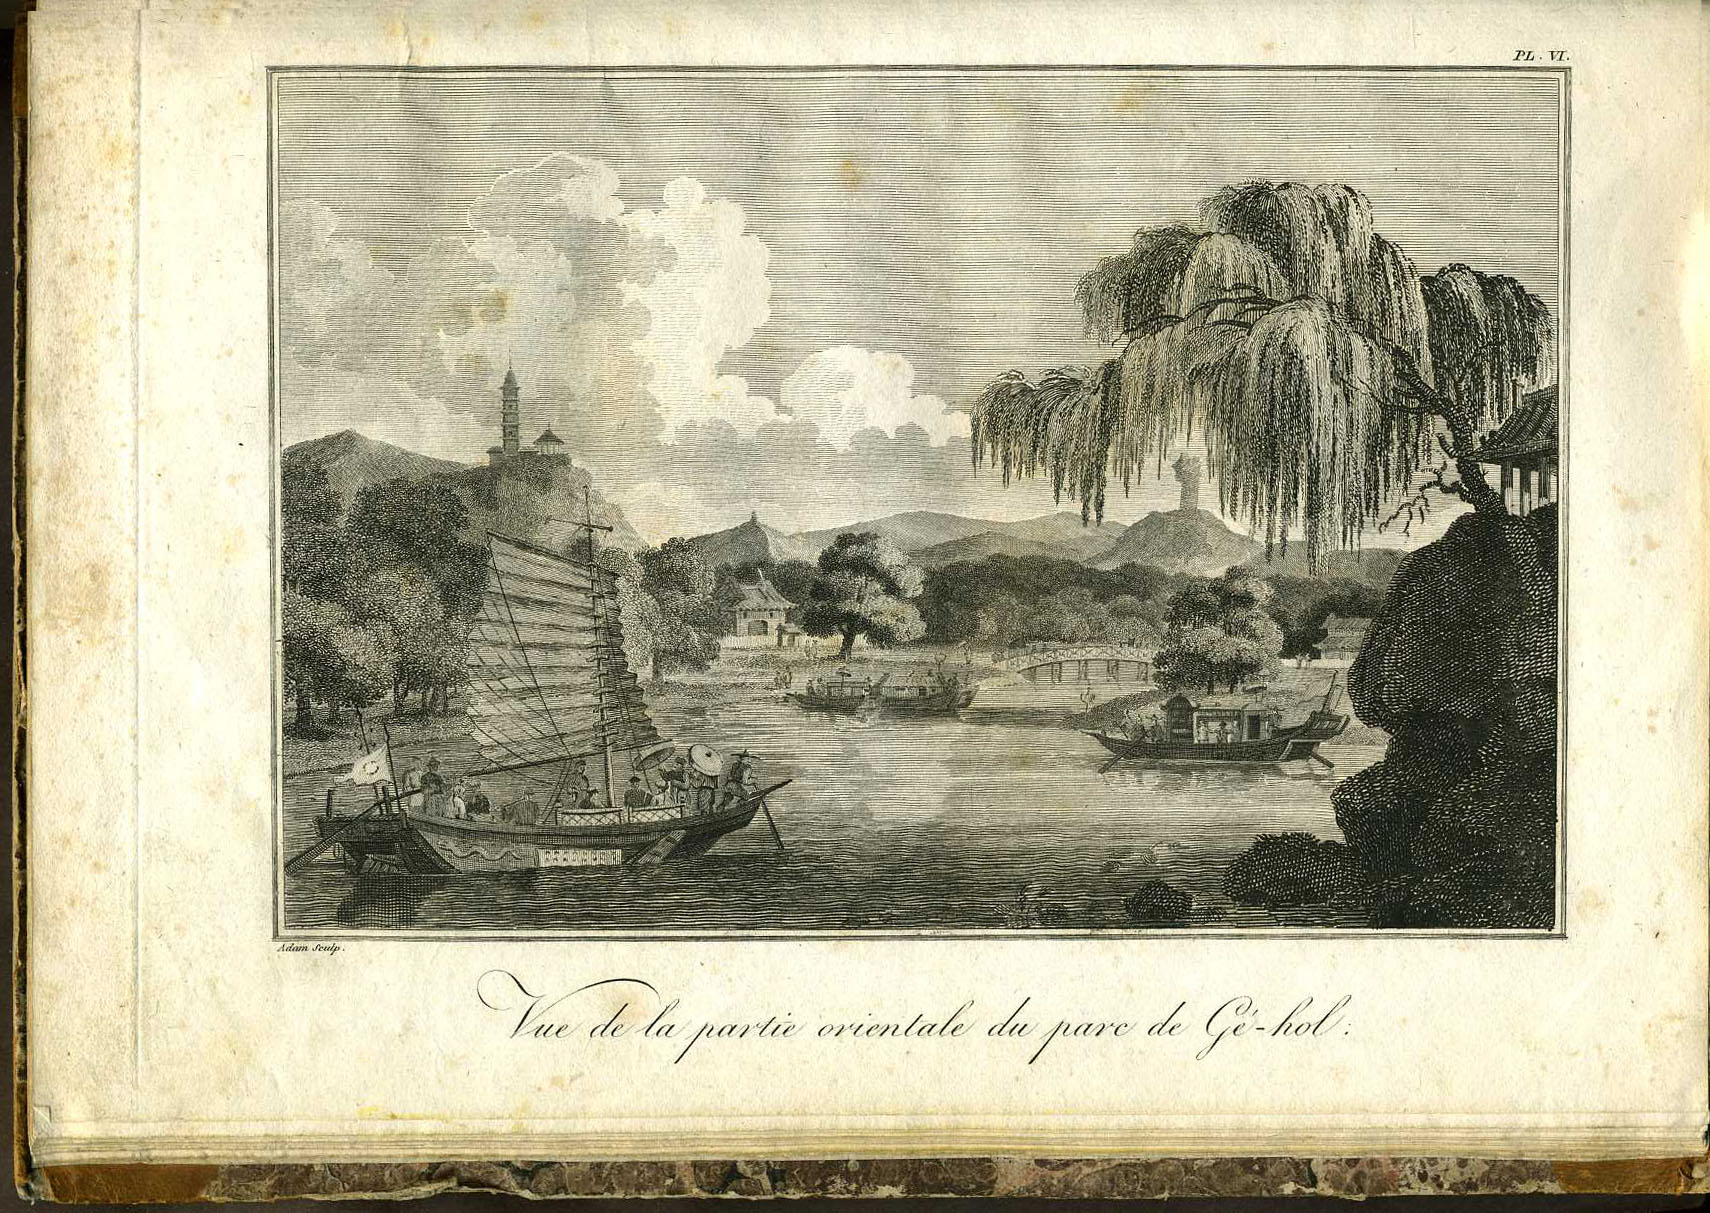 PL. VI.
Adam Sculp.
Vue de la partie orientale du parc de Gé-hol.